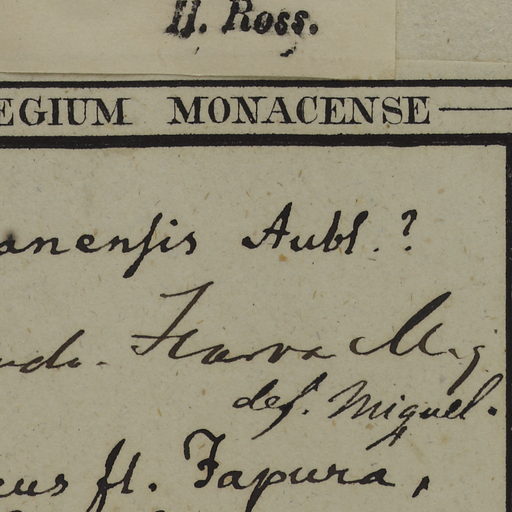 H. Ross.
EGIUM MONACENSE
anensis Aubl.?
Miq.
det. Miquel.
cus fl. Japura,